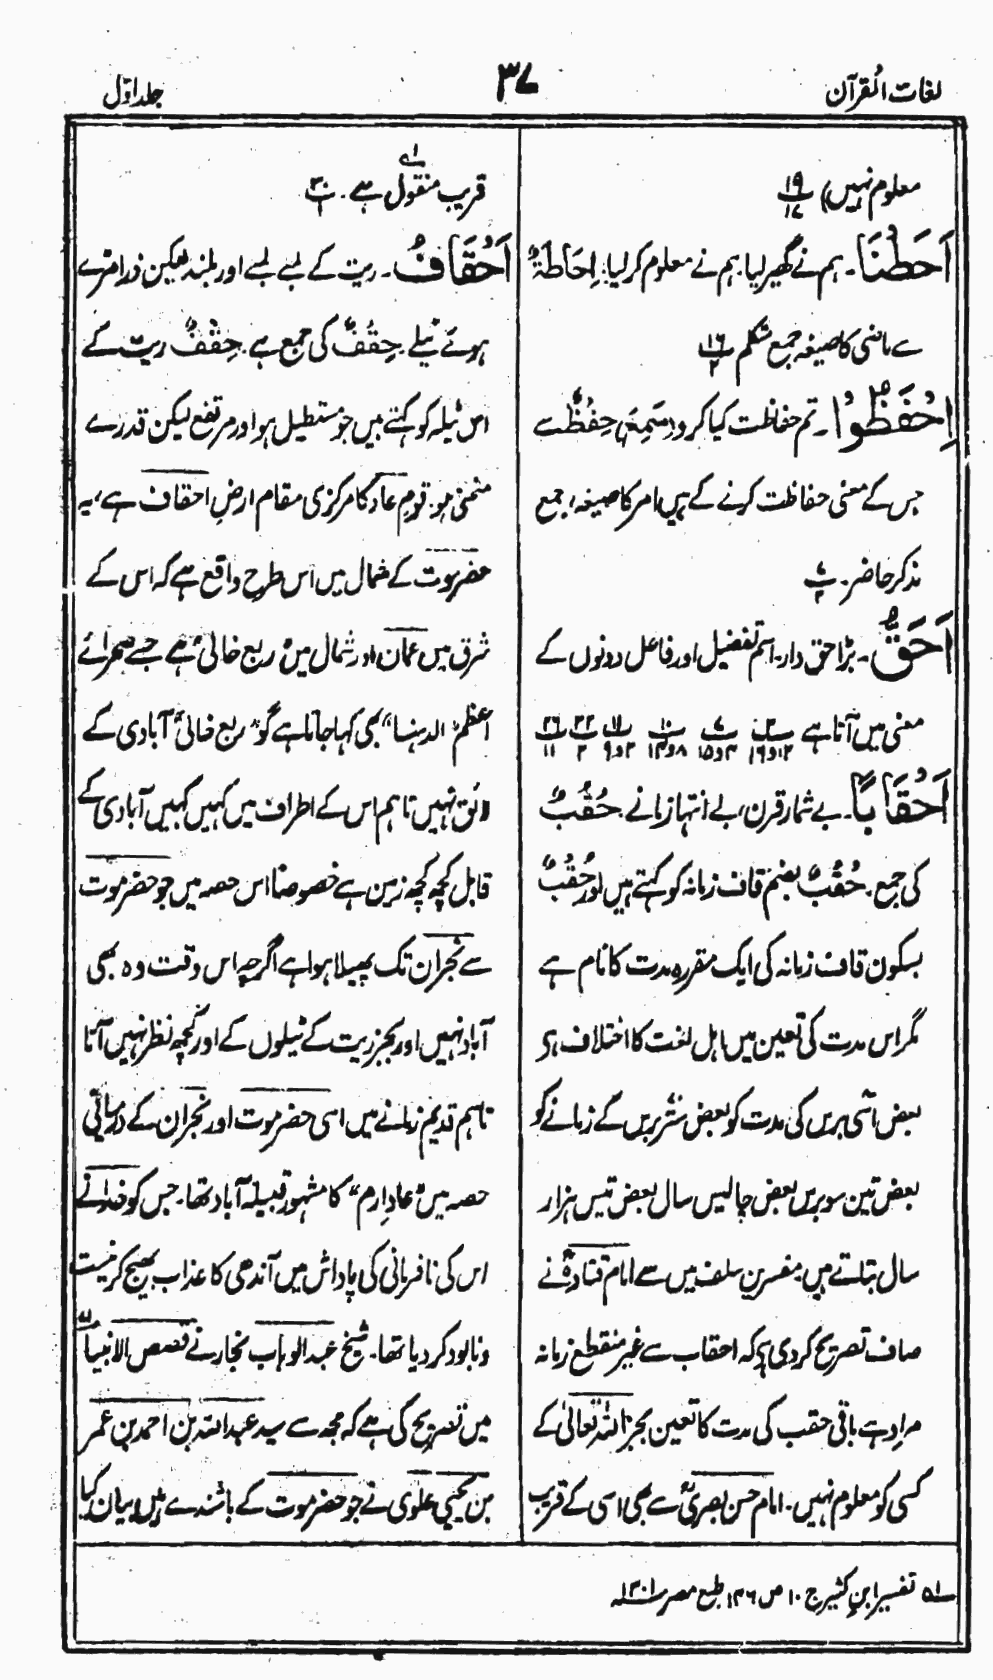 لغات القرآن
۳۷
جلد اوّل
معلوم نہیں) ۱۹/۱۷
اَحَطْنَا۔ ہم نے گھیر لیا۔ ہم نے معلوم کر لیا۔ اِحَاطَۃٌ
سے ماضی کا صیغہ جمع متکلم ۱۶/۲
اِحْفَظُوْا۔ تم حفاظت کیا کرو (سَمِعَ) حِفْظٌ سے
جس کے معنی حفاظت کرنے کے ہیں امر کا صیغہ، جمع
مذکر حاضر۔ ۷/۲
اَحَقُّ۔ بڑا حق دار۔ اسم تفضیل اور فاعل دونوں کے
معنی میں آتا ہے
اَحْقَابًا۔ بے شمار قرن، بے انتہا زمانے۔ حُقُبٌ
کی جمع۔ حُقُبٌ بضم قاف زمانہ کو کہتے ہیں اور حُقْبٌ
بسکون قاف زمانہ کی ایک مقررہ مدت کا نام ہے
مگر اس مدت کی تعین میں اہل لغت کا اختلاف ہی
بعض اسّی برس کی مدت کو بعض ستّر برس کے زمانے کو
بعض تین سو برس بعض چالیس سال بعض تیس ہزار
سال بتاتے ہیں۔ مفسرین سلف میں سے امام قتادہؒ نے
صاف تصریح کر دی ہی کہ احقاب سے غیر منقطع زمانہ
مراد ہے باقی حقب کی مدت کا تعین بجز اللہ تعالیٰ کے
کسی کو معلوم نہیں۔ امام حسن بصریؒ سے بھی اسی کے قریب
قریب منقول ہے۔ ۳۰/۱
اَحْقَافٌ۔ ریت کے لمبے لمبے اور بلند لیکن ذرا مڑے
ہوئے ٹیلے۔ حِقْفٌ کی جمع ہے۔ حِقْفٌ ریت کے
اس ٹیلہ کو کہتے ہیں جو مستطیل ہو اور مرتفع لیکن قدرے
منحنی ہو۔ قوم عاد کا مرکزی مقام ارضِ احقاف ہے، یہ
حضرموت کے شمال میں اس طرح واقع ہے کہ اس کے
شرق میں عمان اور شمال میں ربع خالی ہے جسے صحرائے
اعظم "الدہنا" بھی کہا جاتا ہے گو "ربع خالی" آبادی کے
لائق نہیں تاہم اس کے اطراف میں کہیں کہیں آبادی کے
قابل کچھ کچھ زمین ہے خصوصاً اس حصہ میں جو حضرموت
سے نجران تک پھیلا ہوا ہے اگرچہ اس وقت وہ بھی
آباد نہیں اور بجز ریت کے ٹیلوں کے اور کچھ نظر نہیں آتا
تاہم قدیم زمانے میں اسی حضرموت اور نجران کے درمیانی
حصہ میں "عاد ارم" کا مشہور قبیلہ آباد تھا۔ جس کو خدا نے
اس کی نافرمانی کی پاداش میں آندھی کا عذاب بھیج کر نیست
و نابود کر دیا تھا۔ شیخ عبدالوہاب نجار نے قصص الانبیاء
میں تصریح کی ہے کہ مجھ سے سید عبداللہ بن احمد بن عمر
بن یحییٰ علوی نے جو حضرموت کے باشندے ہیں بیان کیا
۱؎ تفسیر ابن کثیر ج ۱۰ ص ۱۳۶ طبع مصر ۱۳۰۱